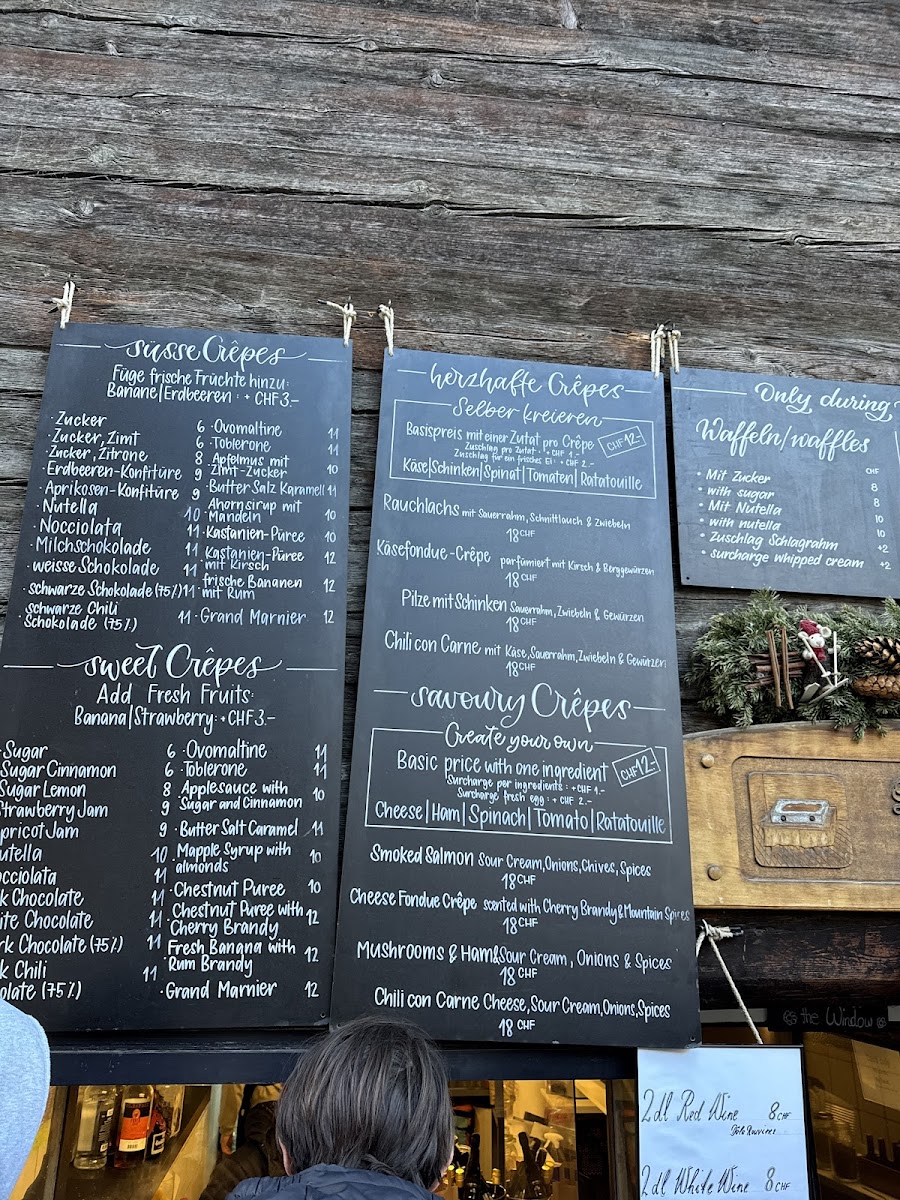 süsse Crêpes
Füge frische Früchte hinzu:
Banane|Erdbeeren : + CHF 3.-
· Zucker 6
· Zucker, Zimt 6
· Zucker, Zitrone 8
· Erdbeeren-Konfitüre 9
· Aprikosen-Konfitüre 9
· Nutella 10
· Nocciolata 11
· Milchschokolade 11
· weisse Schokolade 11
· schwarze Schokolade (75%) 11
schwarze Chili
Schokolade (75%) 11
· Ovomaltine 11
· Toblerone 11
· Apfelmus mit
Zimt-Zucker 10
· Butter Salz Karamell 11
· Ahornsirup mit
Mandeln 10
· Kastanien-Püree 10
· Kastanien-Püree
mit Kirsch 12
· frische Bananen
mit Rum 12
· Grand Marnier 12
sweet Crêpes
Add Fresh Fruits:
Banana|Strawberry : + CHF 3.-
Sugar 6
Sugar Cinnamon 6
Sugar Lemon 8
Strawberry Jam 9
pricot Jam 9
utella 10
occiolata 11
k Chocolate 11
ite Chocolate 11
rk Chocolate (75%) 11
k Chili
olate (75%) 11
· Ovomaltine 11
· Toblerone 11
· Applesauce with
Sugar and Cinnamon 10
· Butter Salt Caramel 11
· Mapple Syrup with
almonds 10
· Chestnut Puree 10
· Chestnut Puree with
Cherry Brandy 12
· Fresh Banana with
Rum Brandy 12
· Grand Marnier 12
herzhafte Crêpes
Selber kreieren
Basispreis mit einer Zutat pro Crêpe CHF 12.-
Zuschlag pro Zutat : + CHF 1.-
Zuschlag für ein frisches Ei : + CHF 2.-
Käse|Schinken|Spinat|Tomaten|Ratatouille
Rauchlachs mit Sauerrahm, Schnittlauch & Zwiebeln
18 CHF
Käsefondue-Crêpe parfümiert mit Kirsch & Berggewürzen
18 CHF
Pilze mit Schinken Sauerrahm, Zwiebeln & Gewürzen
18 CHF
Chili con Carne mit Käse, Sauerrahm, Zwiebeln & Gewürzen
18 CHF
savoury Crêpes
Create your own
Basic price with one ingredient CHF 12.-
Surcharge per ingredients : + CHF 1.-
Surcharge fresh egg : + CHF 2.-
Cheese|Ham|Spinach|Tomato|Ratatouille
Smoked Salmon Sour Cream, Onions, Chives, Spices
18 CHF
Cheese Fondue Crêpe scented with Cherry Brandy & Mountain Spices
18 CHF
Mushrooms & Ham & Sour Cream, Onions & Spices
18 CHF
Chili con Carne Cheese, Sour Cream, Onions, Spices
18 CHF
Only during
Waffeln/waffles
CHF
· Mit Zucker 8
· with sugar 8
· Mit Nutella 10
· with nutella 10
· Zuschlag Schlagrahm +2
· surcharge whipped cream +2
the Window
2dl Red Wine 8 CHF
2dl White Wine 8 CHF